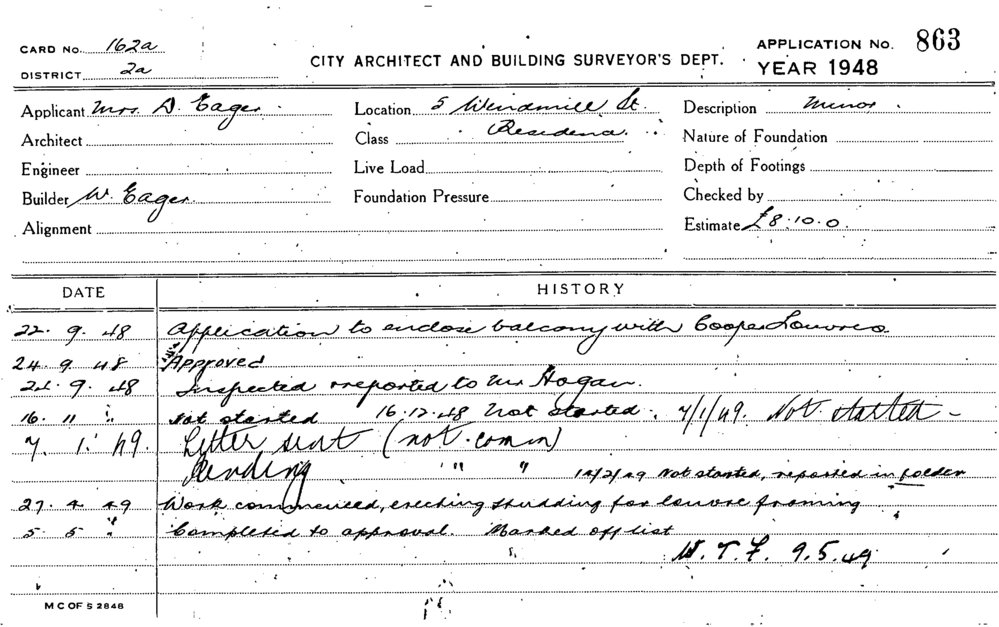 CARD No. 162a
DISTRICT 2a
CITY ARCHITECT AND BUILDING SURVEYOR'S DEPT.
APPLICATION No. 863
YEAR 1948
Applicant Mrs. D. Eager.
Architect
Engineer
Builder W. Eager.
Alignment
Location 5 Windmill St.
Class Residence.
Live Load
Foundation Pressure
Description Minor.
Nature of Foundation
Depth of Footings
Checked by
Estimate £8.10.0
DATE HISTORY
22. 9. 48 Application to enclose balcony with Cooper Louvres.
24. 9. 48 Approved
24. 9. 48 Inspected & reported to Mr Hogan.
16. 11 " Not started 16.12.48 Not started. 7/1/49. Not started -
7. 1. 49. Letter sent (not comm)
Pending " " 14/2/49 Not started, reported in folder
27. 4. 49 Work commenced, erecting studding for louvre framing
5. 5 " Completed to approval. Marked off list
W. T. F. 9.5.49
M C OF S 2848